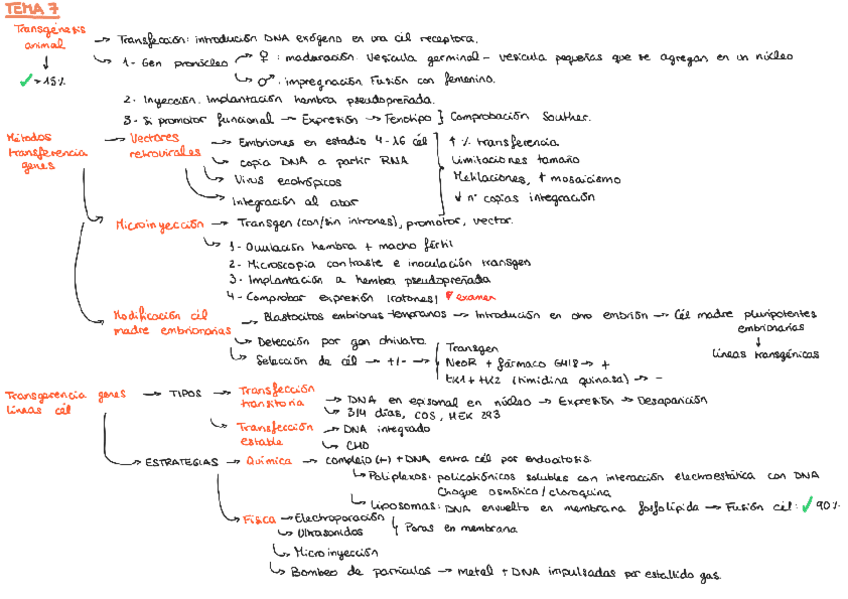 TEMA 7
Transgénesis animal
✓ > 15%
→ Transfección: introdución DNA exógeno en una cél receptora.
1- Gen pronúcleo → ♀: maduración. Vesícula germinal - vesícula pequeñas que se agregan en un núcleo
♂: impregnación Fusión con femenino.
2- Inyección. Implantación hembra pseudopreñada.
3- Si promotor funcional → Expresión → Fenotipo } Comprobación Souther.
Métodos transferencia genes
→ Vectores retrovirales
→ Embriones en estadio 4-16 cél
copia DNA a partir RNA
Virus ecotrópicos
Integración al azar
↑ % transferencia
Limitaciones tamaño
Metilaciones, ↑ mosaicismo
↓ nº copias integración
Microinyección → Transgen (con/sin intrones), promotor, vector.
1- Ovulación hembra + macho fértil
2- Microscopia contraste e inoculación transgen
3- Implantación a hembra pseudopreñada
4- Comprobar expresión (ratones) examen
Modificación cél madre embrionarias
→ Blastocitos embriones tempranos → Introducción en otro embrión → Cél madre pluripotentes embrionarias
↓
líneas transgénicas
Detección por gen chivato
Selección de cél → +/- →
Transgen
NeoR + fármaco G418 → +
tK1 + tK2 (timidina quinasa) → -
Transgerencia genes líneas cél
→ TIPOS → Transfección transitoria
→ DNA en episomal en núcleo → Expresión → Desaparición
3/4 días, COS, HEK 293
Transfección estable
→ DNA integrado
CHO
ESTRATEGIAS → Química → complejo (+) + DNA entra cél por endocitosis.
Poliplexos: policatiónicos solubles con interacción electroestática con DNA
Choque osmótico / cloroquina
Liposomas: DNA envuelto en membrana fosfolípida → Fusión cél: ✓ 90%
Física → Electroporación
Ultrasonidos
Poros en membrana
Microinyección
Bombeo de partículas → metal + DNA impulsadas por estallido gas.